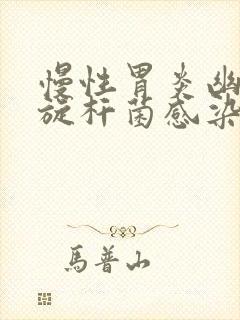 慢性胃炎幽
旋杆菌感染
馬普山